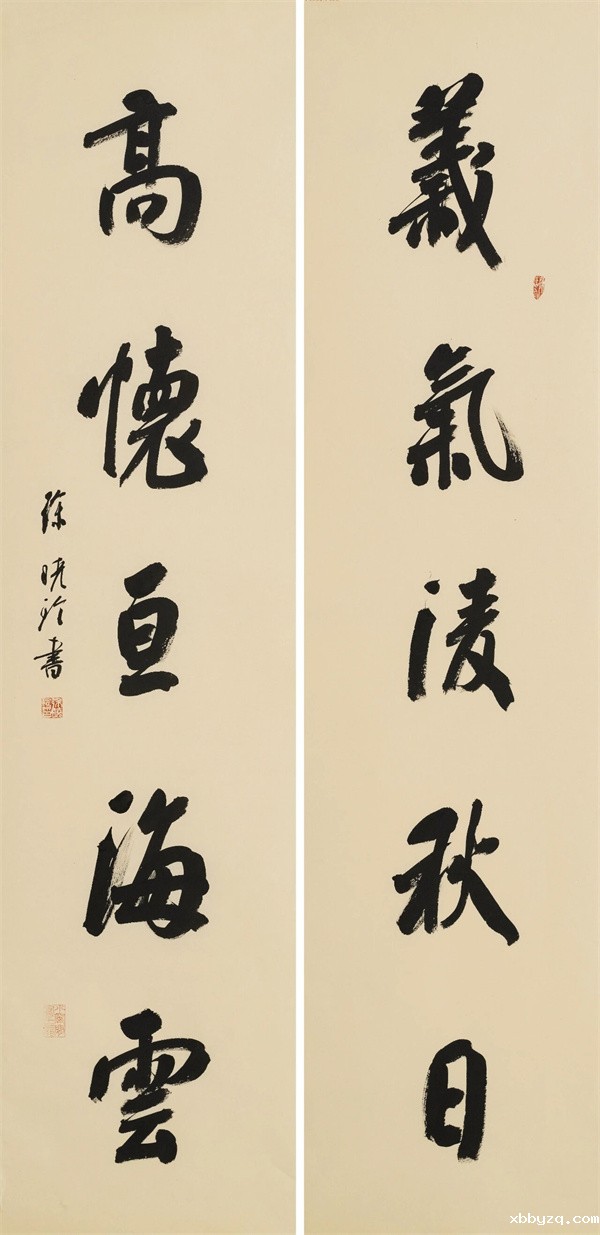 義氣凌秋日
高懷亘海雲
徐曉玲書
xbbyzq.com